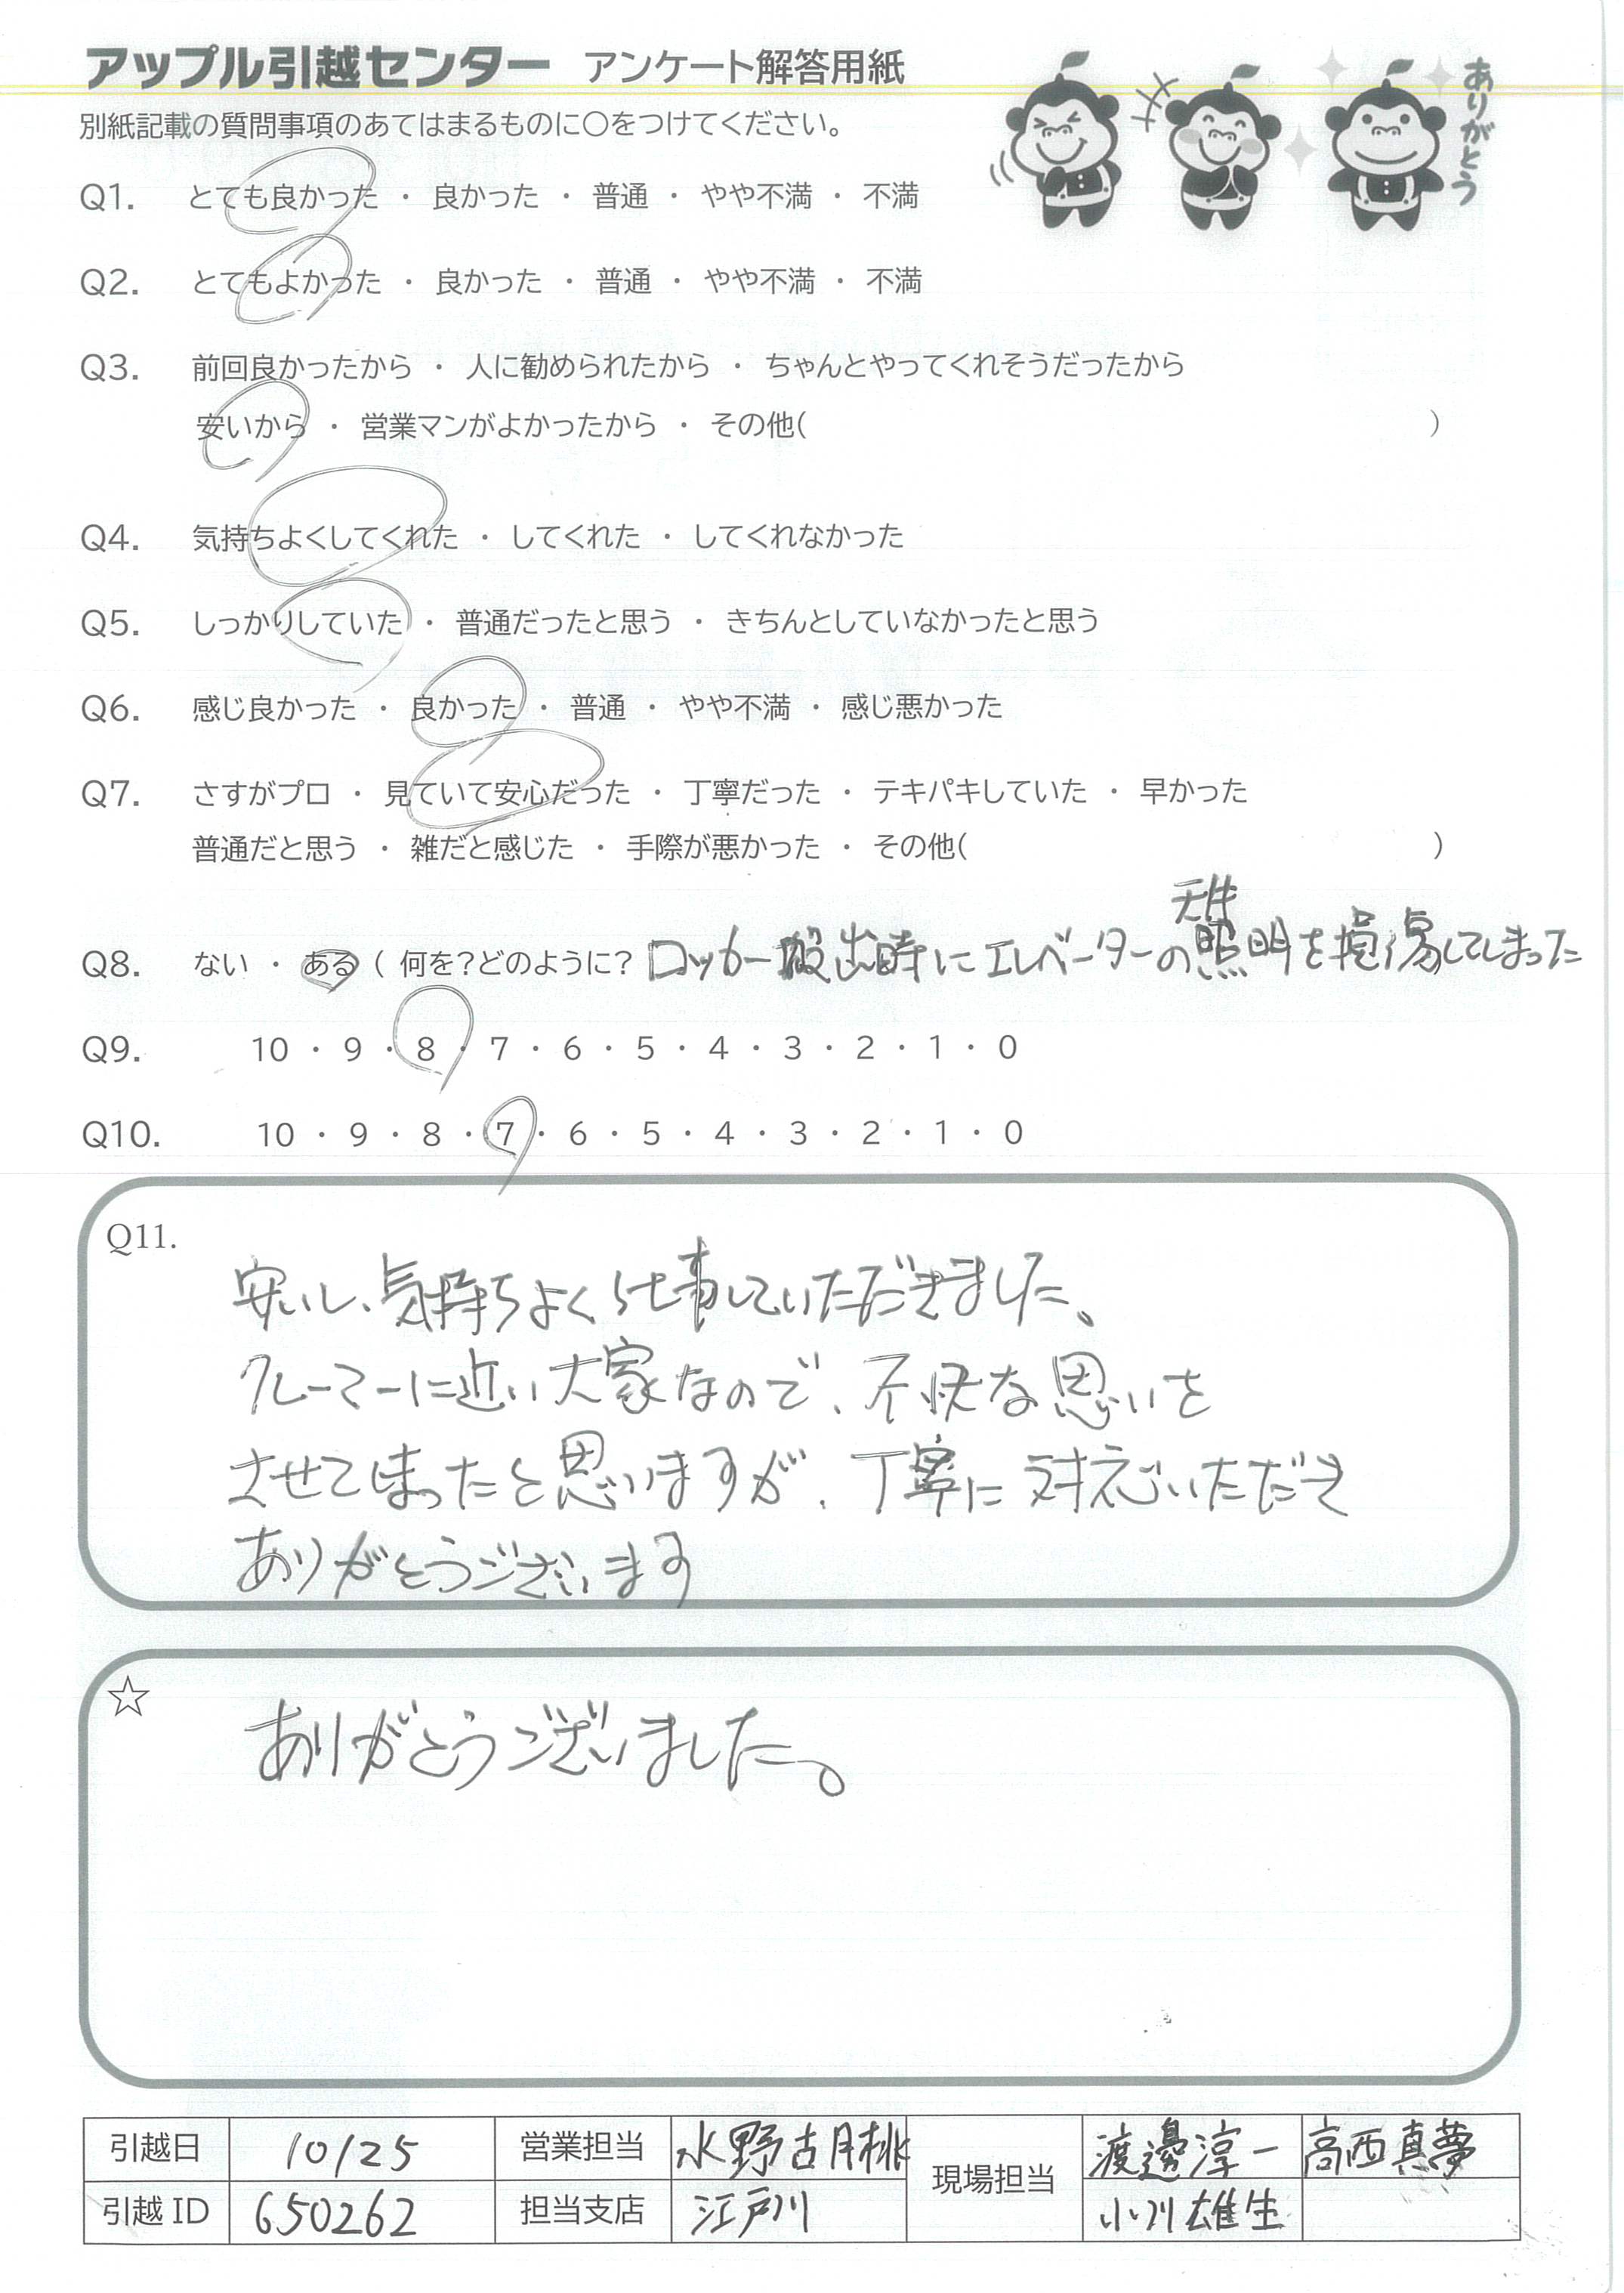 アップル引越センター アンケート解答用紙
ありがとう
別紙記載の質問事項のあてはまるものに○をつけてください。
Q1. とても良かった ・ 良かった ・ 普通 ・ やや不満 ・ 不満
Q2. とてもよかった ・ 良かった ・ 普通 ・ やや不満 ・ 不満
Q3. 前回良かったから ・ 人に勧められたから ・ ちゃんとやってくれそうだったから
安いから ・ 営業マンがよかったから ・ その他( )
Q4. 気持ちよくしてくれた ・ してくれた ・ してくれなかった
Q5. しっかりしていた ・ 普通だったと思う ・ きちんとしていなかったと思う
Q6. 感じ良かった ・ 良かった ・ 普通 ・ やや不満 ・ 感じ悪かった
Q7. さすがプロ ・ 見ていて安心だった ・ 丁寧だった ・ テキパキしていた ・ 早かった
普通だと思う ・ 雑だと感じた ・ 手際が悪かった ・ その他( )
天井
Q8. ない ・ ある ( 何を?どのように? ロッカー搬出時にエレベーターの照明を損傷してしまった
Q9. 10 ・ 9 ・ 8 ・ 7 ・ 6 ・ 5 ・ 4 ・ 3 ・ 2 ・ 1 ・ 0
Q10. 10 ・ 9 ・ 8 ・ 7 ・ 6 ・ 5 ・ 4 ・ 3 ・ 2 ・ 1 ・ 0
Q11.
安いし、気持ちよく仕事していただきました、
クレーマーに近い大家なので、不快な思いを
させてしまったと思いますが、丁寧に対応いただき
ありがとうございます
☆
ありがとうございました。
引越日 10/25 営業担当 水野古月桃 現場担当 渡邊淳一 高西真夢
引越ID 650262 担当支店 江戸川 小川雄生